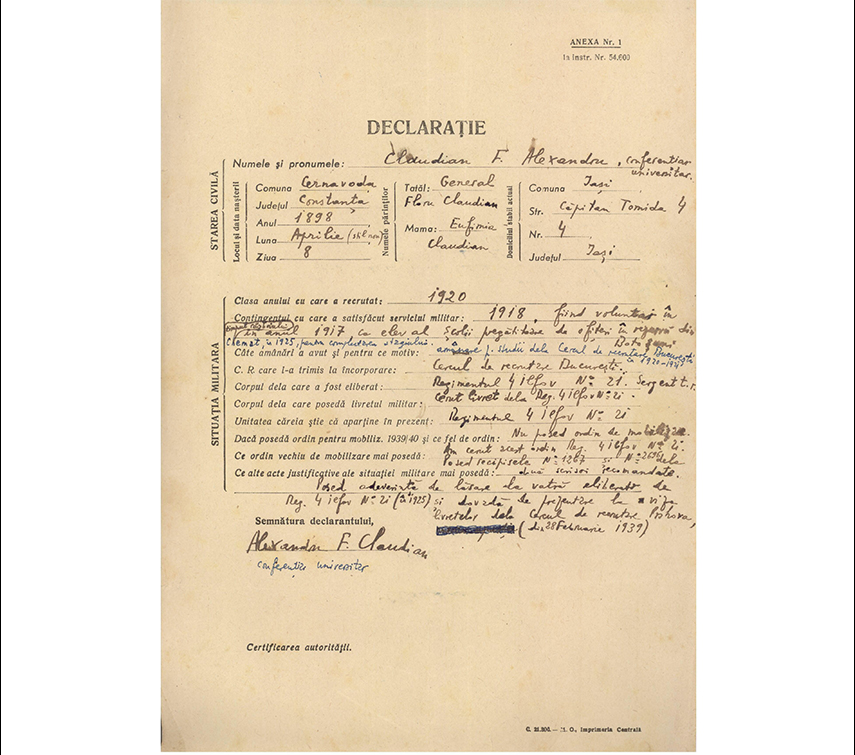 ANEXA Nr. 1
la instr. Nr. 54.600
DECLARAȚIE
STAREA CIVILĂ
Numele și pronumele: Claudian F. Alexandru, conferențiar
universitar.
Locul și data nașterii
Comuna Cernavoda
Județul Constanța
Anul 1898
Luna Aprilie (stil nou)
Ziua 8
Numele părinților
Tatăl: General
Floru Claudian
Mama: Eufimia
Claudian
Domiciliul stabil actual
Comuna Iași
Str. Căpitan Tomida 4
Nr. 4
Județul Iași
SITUAȚIA MILITARA
Clasa anului cu care a recrutat: 1920
Contingentul cu care a satisfăcut serviciul militar: 1918, fiind voluntar în
în anul 1917, ca elev al școlii pregătitoare de ofițeri în rezervă din
Chemat, în 1925, pentru completarea stagiului.
Câte amânări a avut și pentru ce motiv: amânare p. studii dela Cercul de recrutare București
în 1920-1921
C. R. care l-a trimis la încorporare: Cercul de recrutare București.
Corpul dela care a fost eliberat: Regimentul 4 Ilfov No 21. Sergent t.r.
Corpul dela care posedă livretul militar: Cerut livret dela Reg. 4 Ilfov No 21.
Unitatea căreia știe că aparține în prezent: Regimentul 4 Ilfov No 21
Dacă posedă ordin pentru mobiliz. 1939/40 și ce fel de ordin: Nu posed ordin de mobilizare.
Am cerut acest ordin Reg. 4 Ilfov No 21.
Ce ordin vechiu de mobilizare mai posedă: Posed recipisele No 1267 și No dela
Ce alte acte justificative ale situației militare mai posedă: două scrisori recomandate.
Posed adeverința de lăsare la vatră eliberată de
Reg. 4 Ilfov No 21 (în 1925) și dovada de prezentare la viza
livretelor dela Cercul de recrutare Prahova,
(din 28 Februarie 1939)
Semnătura declarantului,
Alexandru F. Claudian
conferențiar universitar
Certificarea autorității.
C. 21.200. — M. O., Imprimeria Centrală